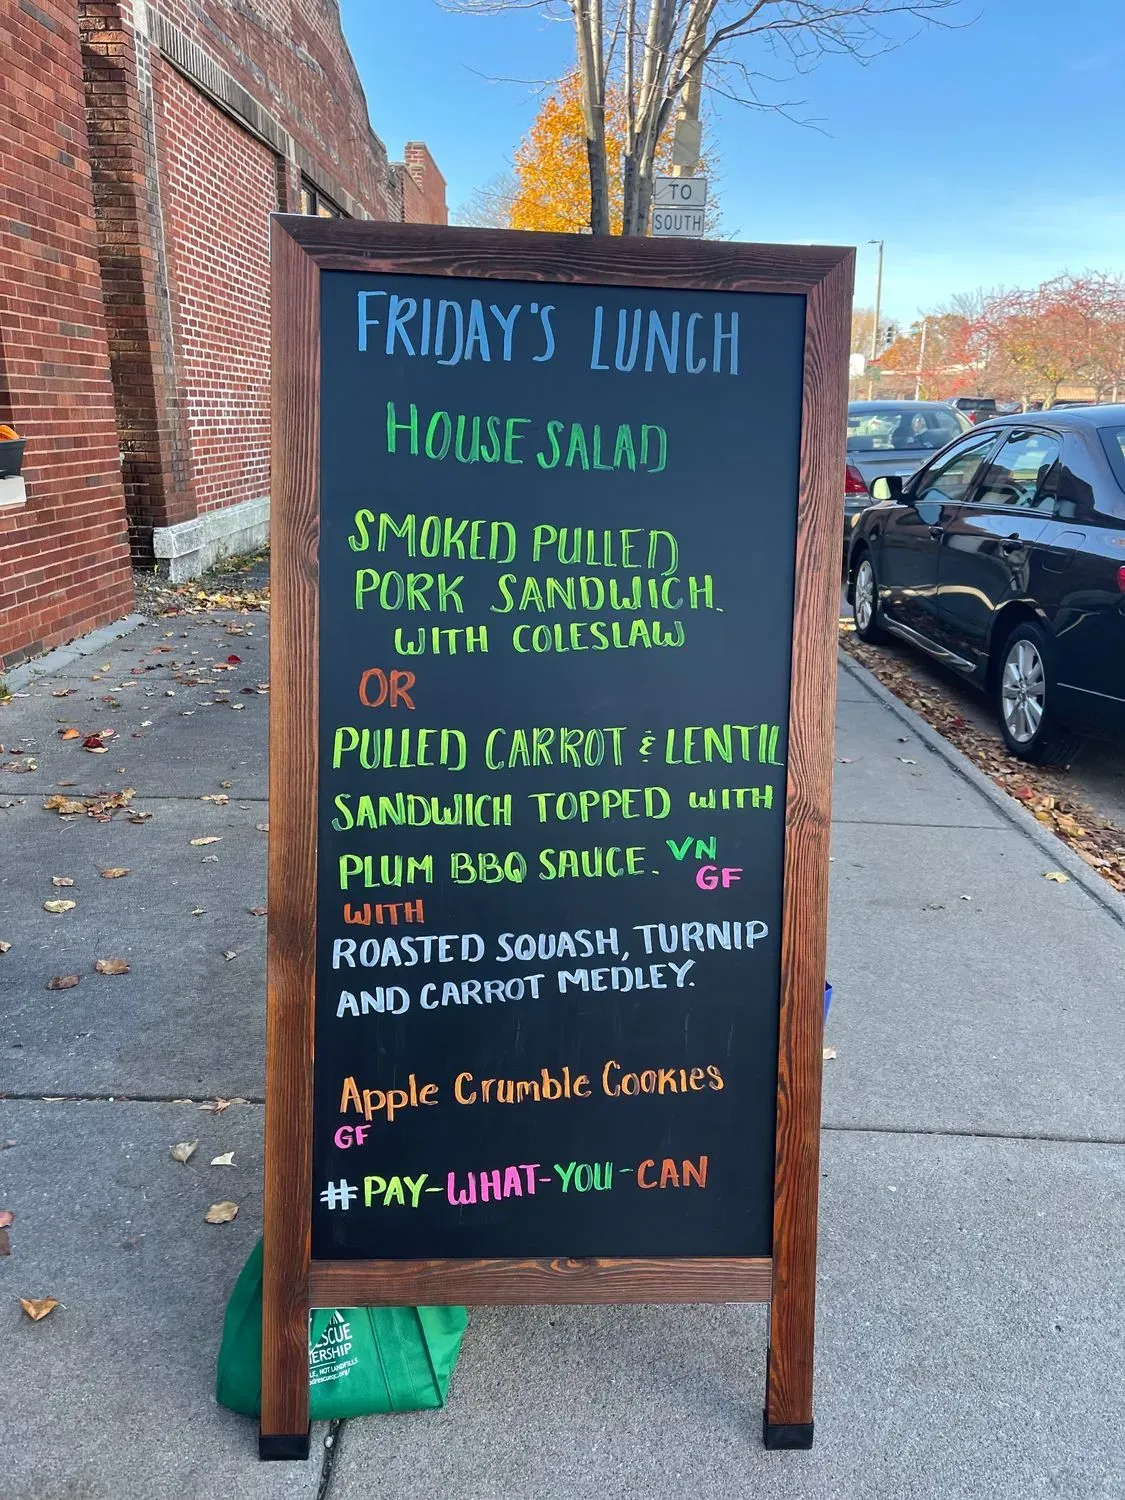 TO
SOUTH
FRIDAY'S LUNCH
HOUSE SALAD
SMOKED PULLED
PORK SANDWICH.
WITH COLESLAW
OR
PULLED CARROT & LENTIL
SANDWICH TOPPED WITH
PLUM BBQ SAUCE. VN
GF
WITH
ROASTED SQUASH, TURNIP
AND CARROT MEDLEY.
Apple Crumble Cookies
GF
#PAY-WHAT-YOU-CAN
ESCUE
ERSHIP
LE, NOT LANDFILLS